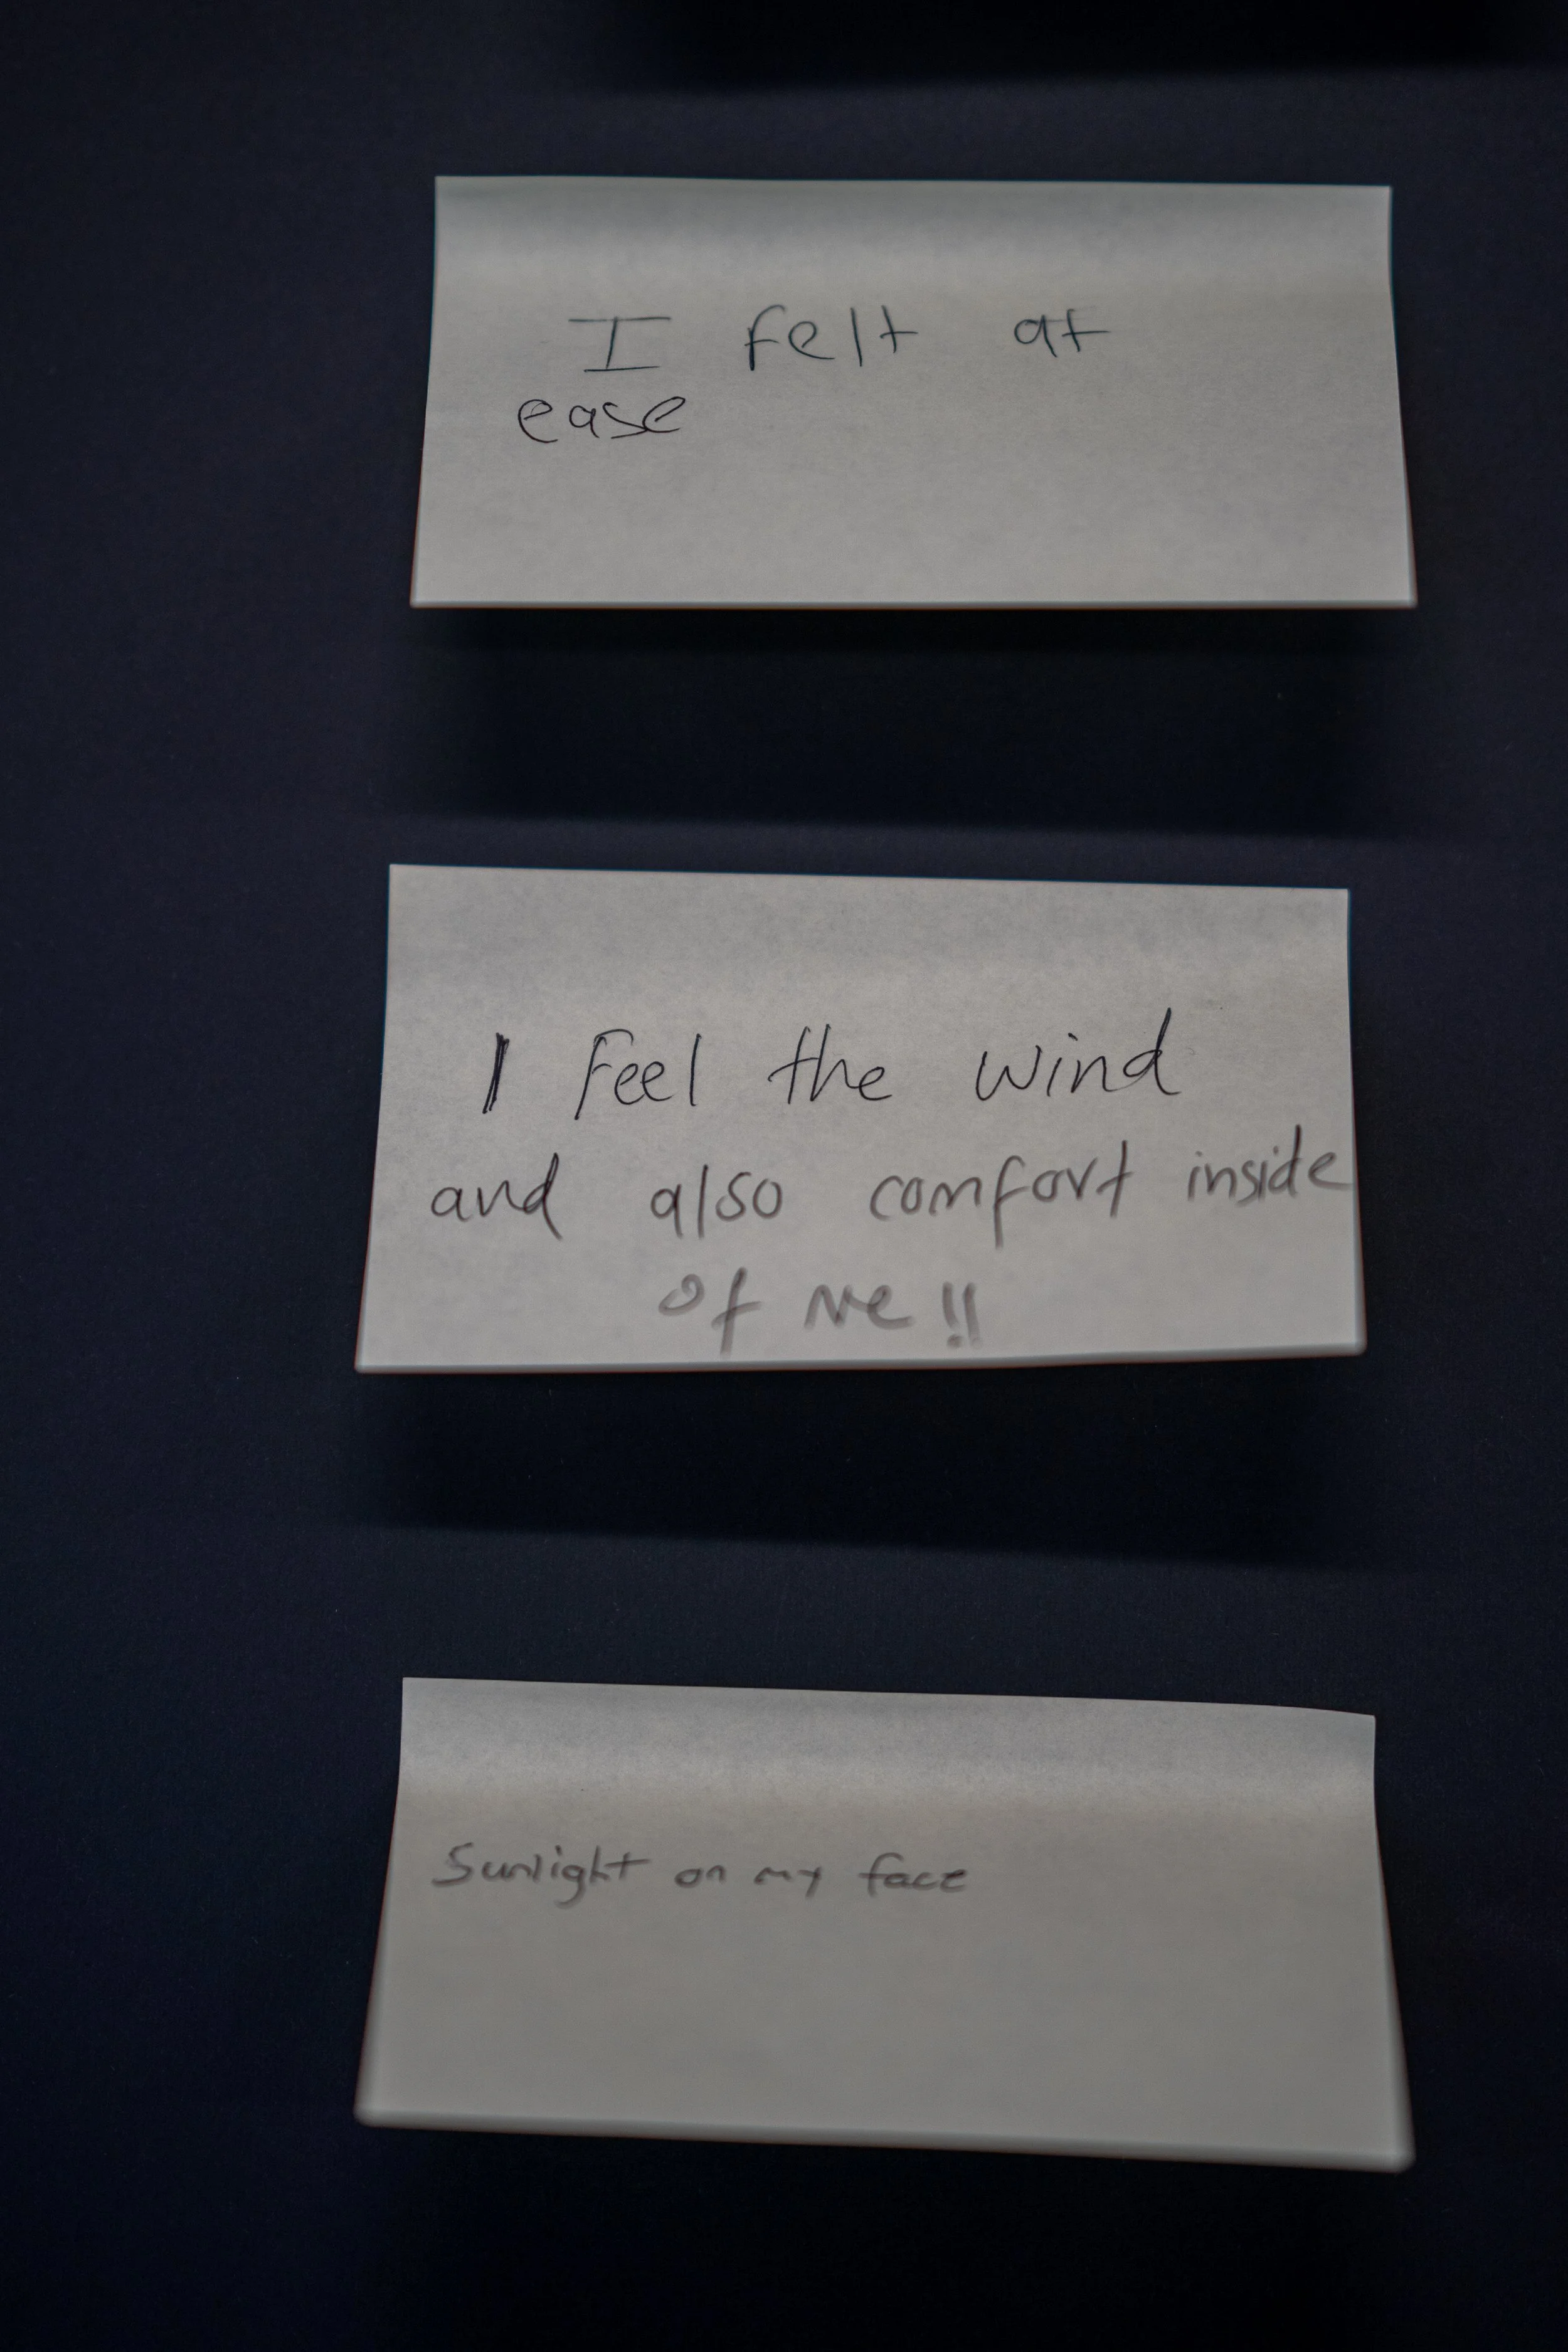 I felt at
ease
I feel the wind
and also comfort inside
of me!!
Sunlight on my face